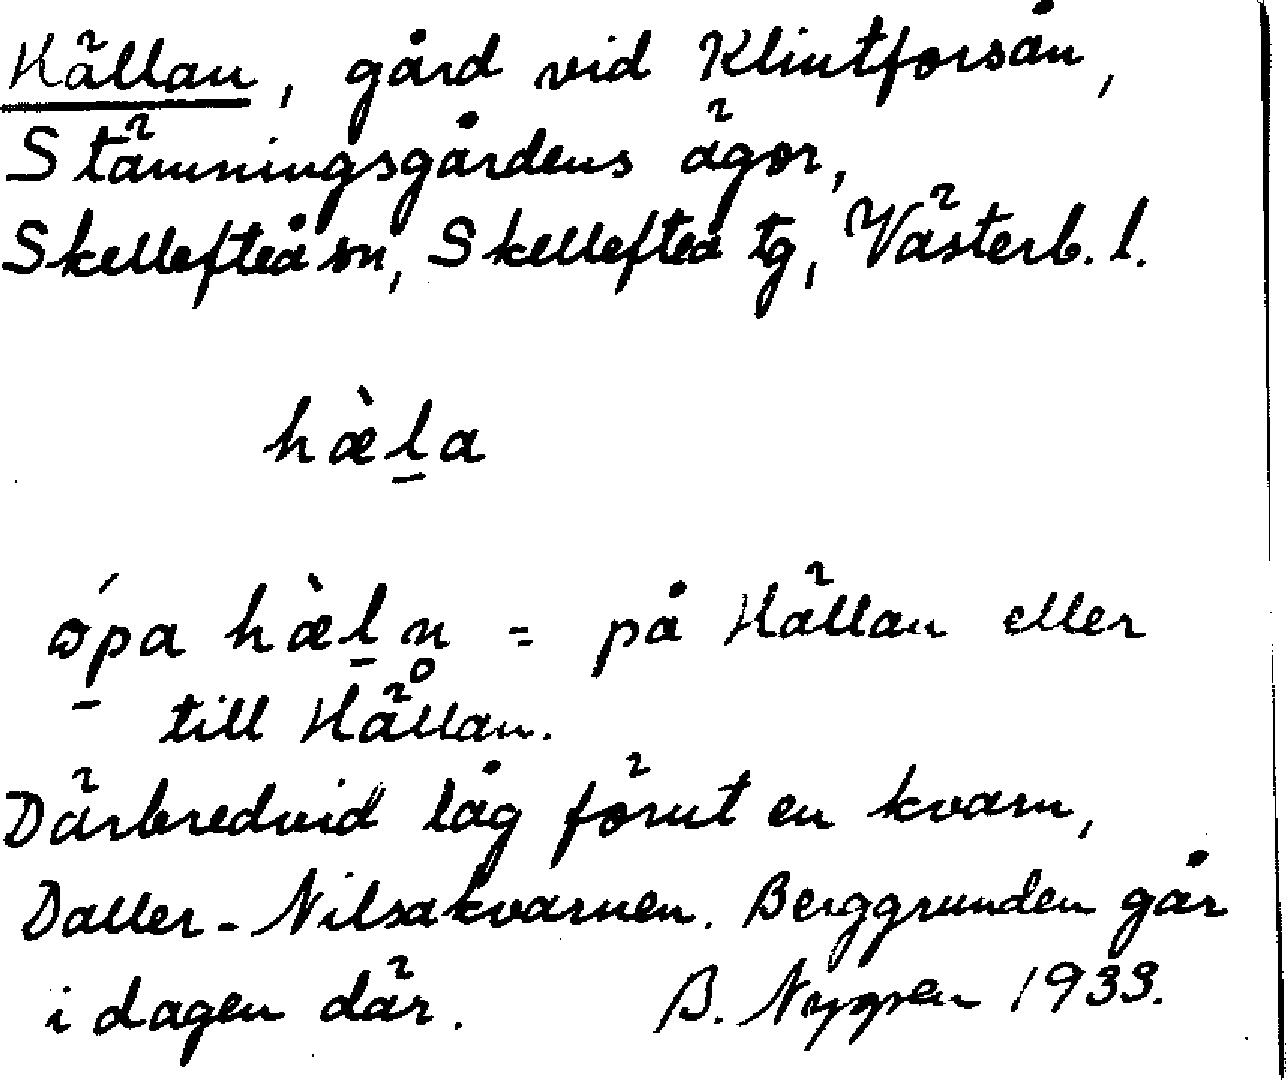 Hällan, gård vid Klintforsån,
Stämningsgårdens ägor,
Skellefteå sn, Skellefteå tg, Västerb. l.
hæ̀l̠a
ǿp̠a hæ̀l̠n = på Hällan eller
till Hällan.
Därbredvid låg förut en kvarn,
Daller-Nilsakvarnen. Berggrunden går
i dagen där. B. Nygren 1933.